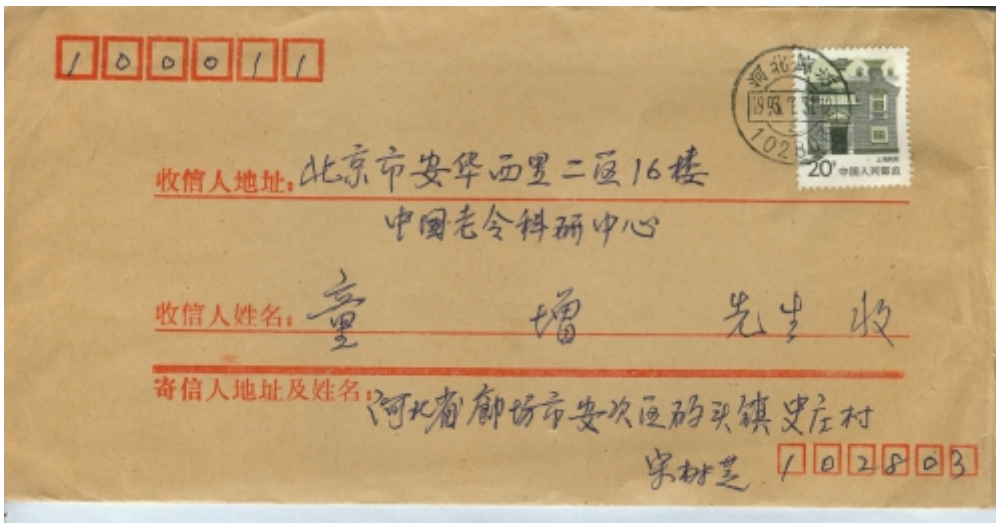 100011
河北廊坊
1993.7.31
10280
上海民居
20分 中国人民邮政
收信人地址:北京市安华西里二区16楼
中国老令科研中心
收信人姓名:童增先生收
寄信人地址及姓名:河北省廊坊市安次区码头镇史庄村
宋树芝 102803